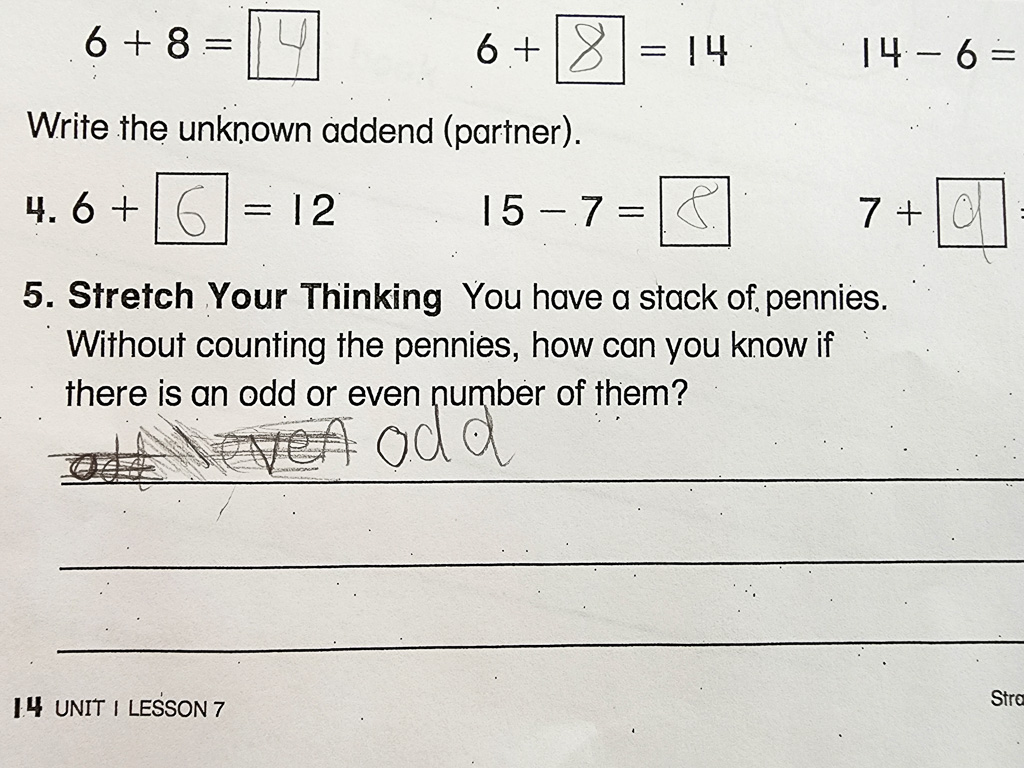 6 + 8 = 14 6 + 8 = 14 14 − 6 =
Write the unknown addend (partner).
4. 6 + 6 = 12 15 − 7 = 8 7 + 9 =
5. Stretch Your Thinking You have a stack of pennies.
Without counting the pennies, how can you know if
there is an odd or even number of them?
odd even odd
14 UNIT 1 LESSON 7